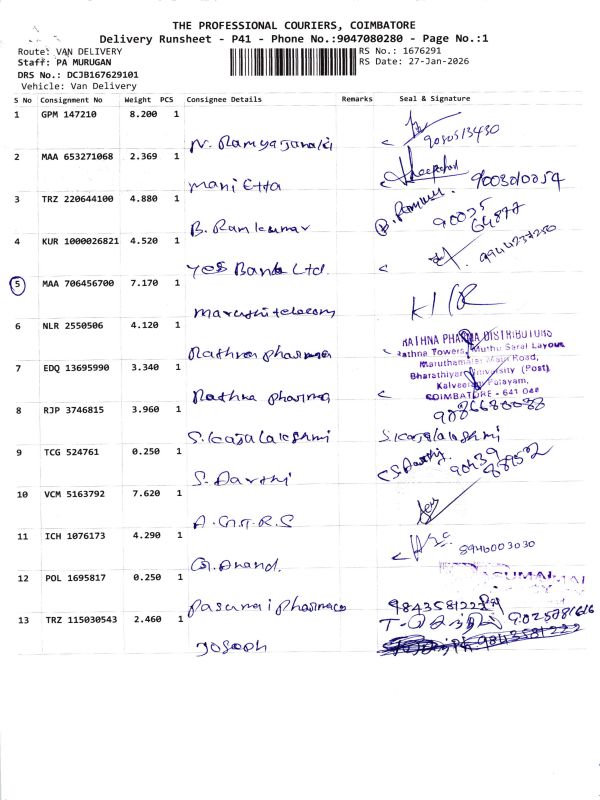 THE PROFESSIONAL COURIERS, COIMBATORE
Delivery Runsheet - P41 - Phone No.:9047080280 - Page No.:1
Route: VAN DELIVERY
RS No.: 1676291
Staff: PA MURUGAN
RS Date: 27-Jan-2026
DRS No.: DCJB167629101
Vehicle: Van Delivery
S No Consignment No Weight PCS Consignee Details Remarks Seal & Signature
1 GPM 147210 8.200 1
N. Ramyajanaki 9080513430
2 MAA 653271068 2.369 1
Mani Etta 9003010054
3 TRZ 220644100 4.880 1
B. Ramkumar B. Ramkumar 90025 64877
4 KUR 1000026821 4.520 1
Yes Bank Ltd. 9944237250
5 MAA 706456700 7.170 1
Maruthi telecom
6 NLR 2550506 4.120 1
Rathna pharma
RATHNA PHARMA DISTRIBUTORS
Rathna Towers, Muthu Saral Layout
Maruthamalai Main Road,
7 EDQ 13695990 3.340 1
Bharathiyar University (Post)
Kalveeram Palayam,
Rathna pharma
COIMBATORE - 641 046
8 RJP 3746815 3.960 1
S. Kajalakshmi S. Kajalakshmi
9 TCG 524761 0.250 1
S. Darthi S. Darthi
10 VCM 5163792 7.620 1
11 ICH 1076173 4.290 1
G. Anand. 8940003030
12 POL 1695817 0.250 1
Pasumai pharmacy 9843581222
13 TRZ 115030543 2.460 1
Joseph 9843581222